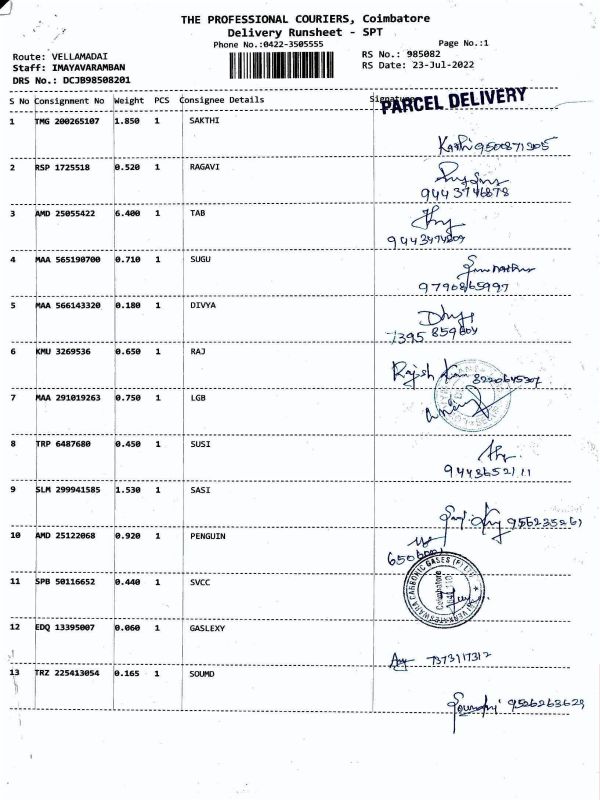 THE PROFESSIONAL COURIERS, Coimbatore
Delivery Runsheet - SPT
Phone No.:0422-3505555
Page No.:1
Route: VELLAMADAI
RS No.: 985082
Staff: IMAYAVARAMBAN
RS Date: 23-Jul-2022
DRS No.: DCJB98508201
S No Consignment No Weight PCS Consignee Details Signature
PARCEL DELIVERY
1 TMG 200265107 1.850 1 SAKTHI
2 RSP 1725518 0.520 1 RAGAVI
9443746878
3 AMD 25055422 6.400 1 TAB
4 MAA 565190700 0.710 1 SUGU
9790865997
5 MAA 566143320 0.180 1 DIVYA
7395 859609
6 KMU 3269536 0.650 1 RAJ
Rajesh
7 MAA 291019263 0.750 1 LGB
8 TRP 6487680 0.450 1 SUSI
9443652111
9 SLM 299941585 1.530 1 SASI
10 AMD 25122068 0.920 1 PENGUIN
11 SPB 50116652 0.440 1 SVCC
12 EDQ 13395007 0.060 1 GASLEXY
7373117312
13 TRZ 225413054 0.165 1 SOUMD
9526263629